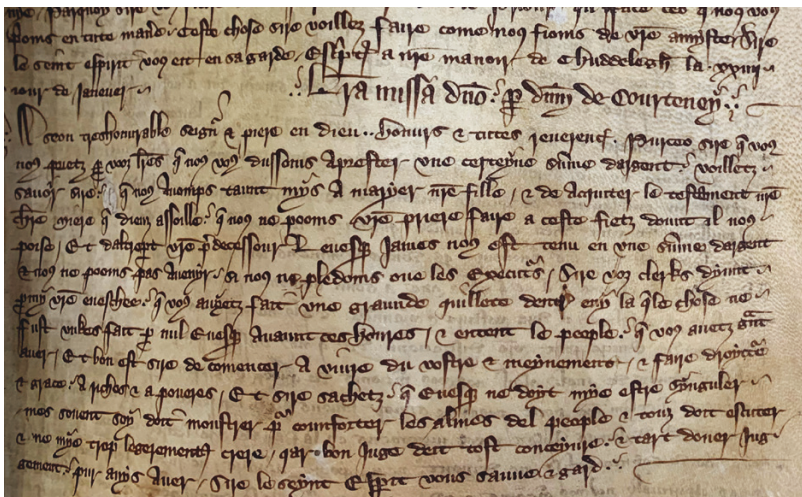 nre. Parquoy sire voillez faire come nous fioms de vre amyste. Sire
le seint espirit vous eit en sa garde. Escript a nre manoir de Chuddelegh la xxiii
iour de Janeuer.
Lra missa dno. p dnm de Courteney.
A son treshonurable seignr & piere en dieu. honurs & tuttes reuerencz. Purceo sire q vous
nous prietz p voz lres q nous vous dussoms aprester vne certeyne summe dargent. voilletz
sauoir sire. q nous auomps taunt mys a maryer nre fille, & de acquiter le testament nre
chere miere q dieu assoille. q nous ne pooms vre priere faire a ceste fietz dount il nous
poise, Et daltrept vre pdecessour Leuesqe James nous est tenu en vne summe dargent
& nous ne pooms pas auenyr. si nous ne pledoms oue les executrs, Sire voz clerks dyunt
pmy vre eueschee. q vous auyetz fait vne graunde quillete denz eny la qle chose ne
fust vnkes fait p nul Euesqe auaunt ces houres, & entent le people. q vous auetz gnt
auer, Et bon est sire de comencer a viure du vostre & meynement, & faire droyture
& grace. A riches & a poueres, Et sire sachetz. q Euesqe ne doyt mye estre synguler
mes souent soy doit monstrer pr comforter les almes del people & touz doit escuter
& ne mye trop legerement crere, qar bon Juge deit tost conceyure. & tart doner Jug
gement. pur amys auer, Sire le seynt Espirit vous sauue & gard.